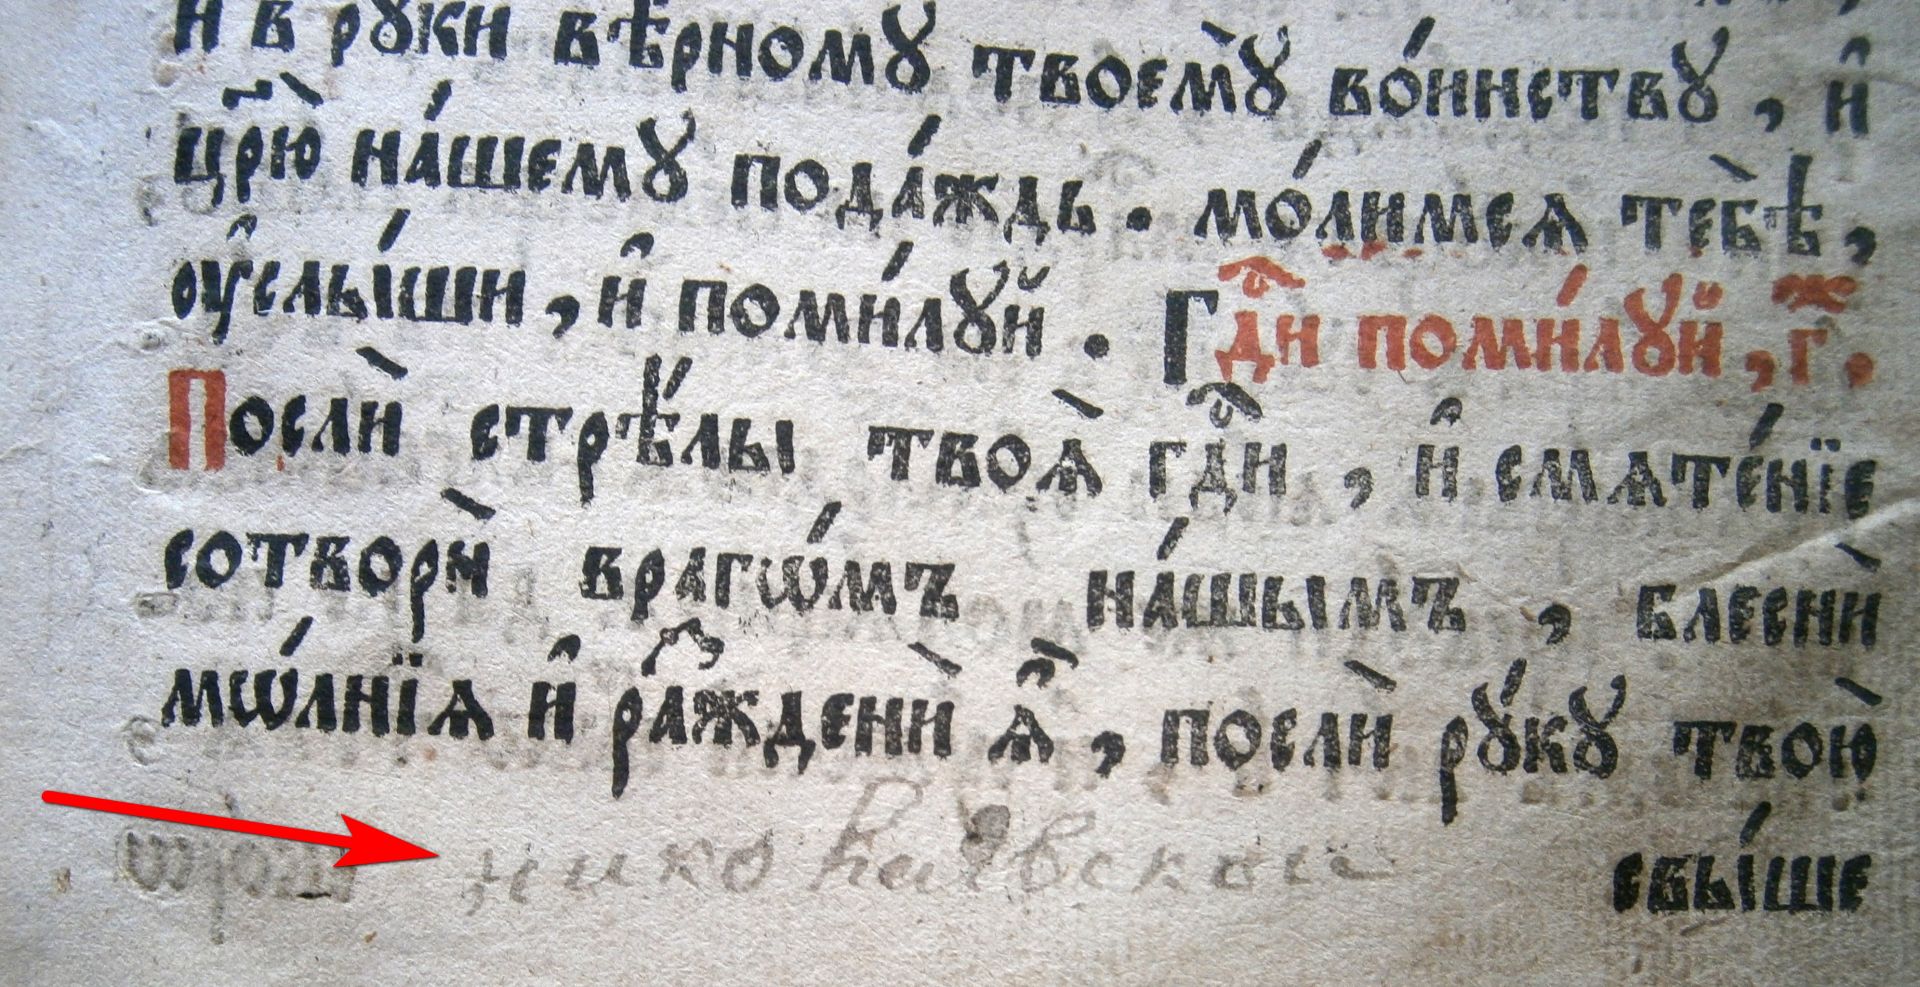 И в рꙋки вѣ́рномꙋ твоемꙋ̀ во́инствꙋ, и҆
цр҃ю̀ на́шемꙋ пода́ждь. мо́лимсѧ тебѣ̀,
ᲂу҆слы́ши, и҆ поми́лꙋй. Гдⷭ҇и поми́лꙋй, г҃.
Послѝ стрѣ́лы твоѧ̑ гдⷭ҇и, и҆ смѧте́нїе
сотворѝ врагѡ́мъ на́шымъ, блеснѝ
мѡ́лнїѧ и҆ раⷥжденѝ ѧ҆̀, послѝ рꙋ́кꙋ твою̀
николаевскои
свы́ше